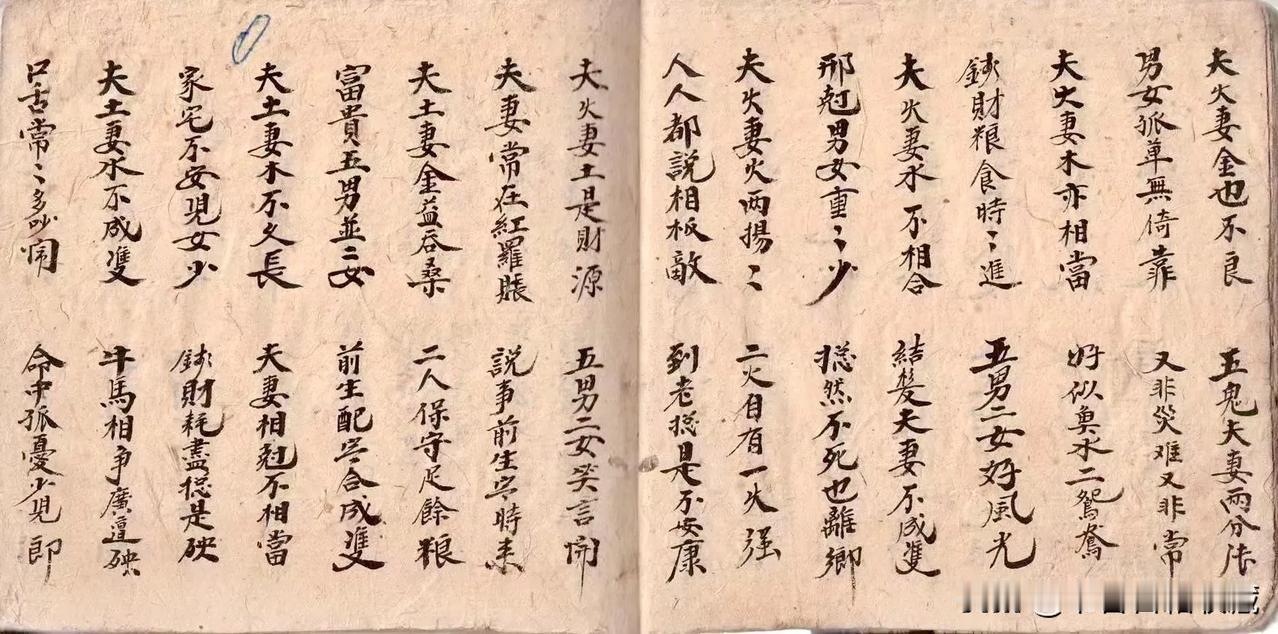 夫火妻金也不良 五鬼夫妻兩分張
男女孤单無倚靠 又非災难又非常
夫火妻木亦相當 好似魚水二鴛鴦
錢財粮食時〻進 五男二女好風光
夫火妻水不相合 結髪夫妻不成雙
邢尅男女重〻少 揔然不死也離鄉
夫火妻火两揚〻 二火自有一火强
人人都說相板敵 到老揔是不安康
夫火妻土是財源 五男二女笑言開
夫妻常在紅羅賬 說事前生定時来
夫土妻金益吞桑 二人保守足餘粮
富貴五男並二女 前生配定合成雙
夫土妻木不久長 夫妻相尅不相當
家宅不安児女少 錢財耗盡揔是殃
夫土妻水不成雙 牛馬相争廣遭殃
口舌常〻多吵鬧 命中孤憂少児郎